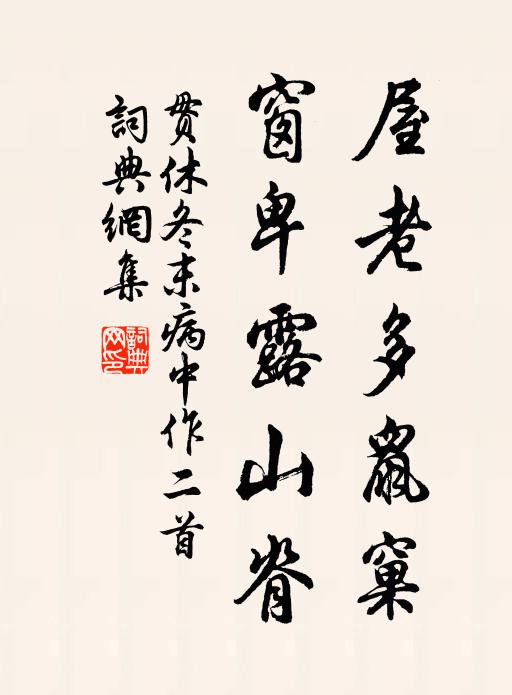 屋老多鼠窠
窗卑露山脊
贯休冬末病中作二首
詞典網集
詞典网印